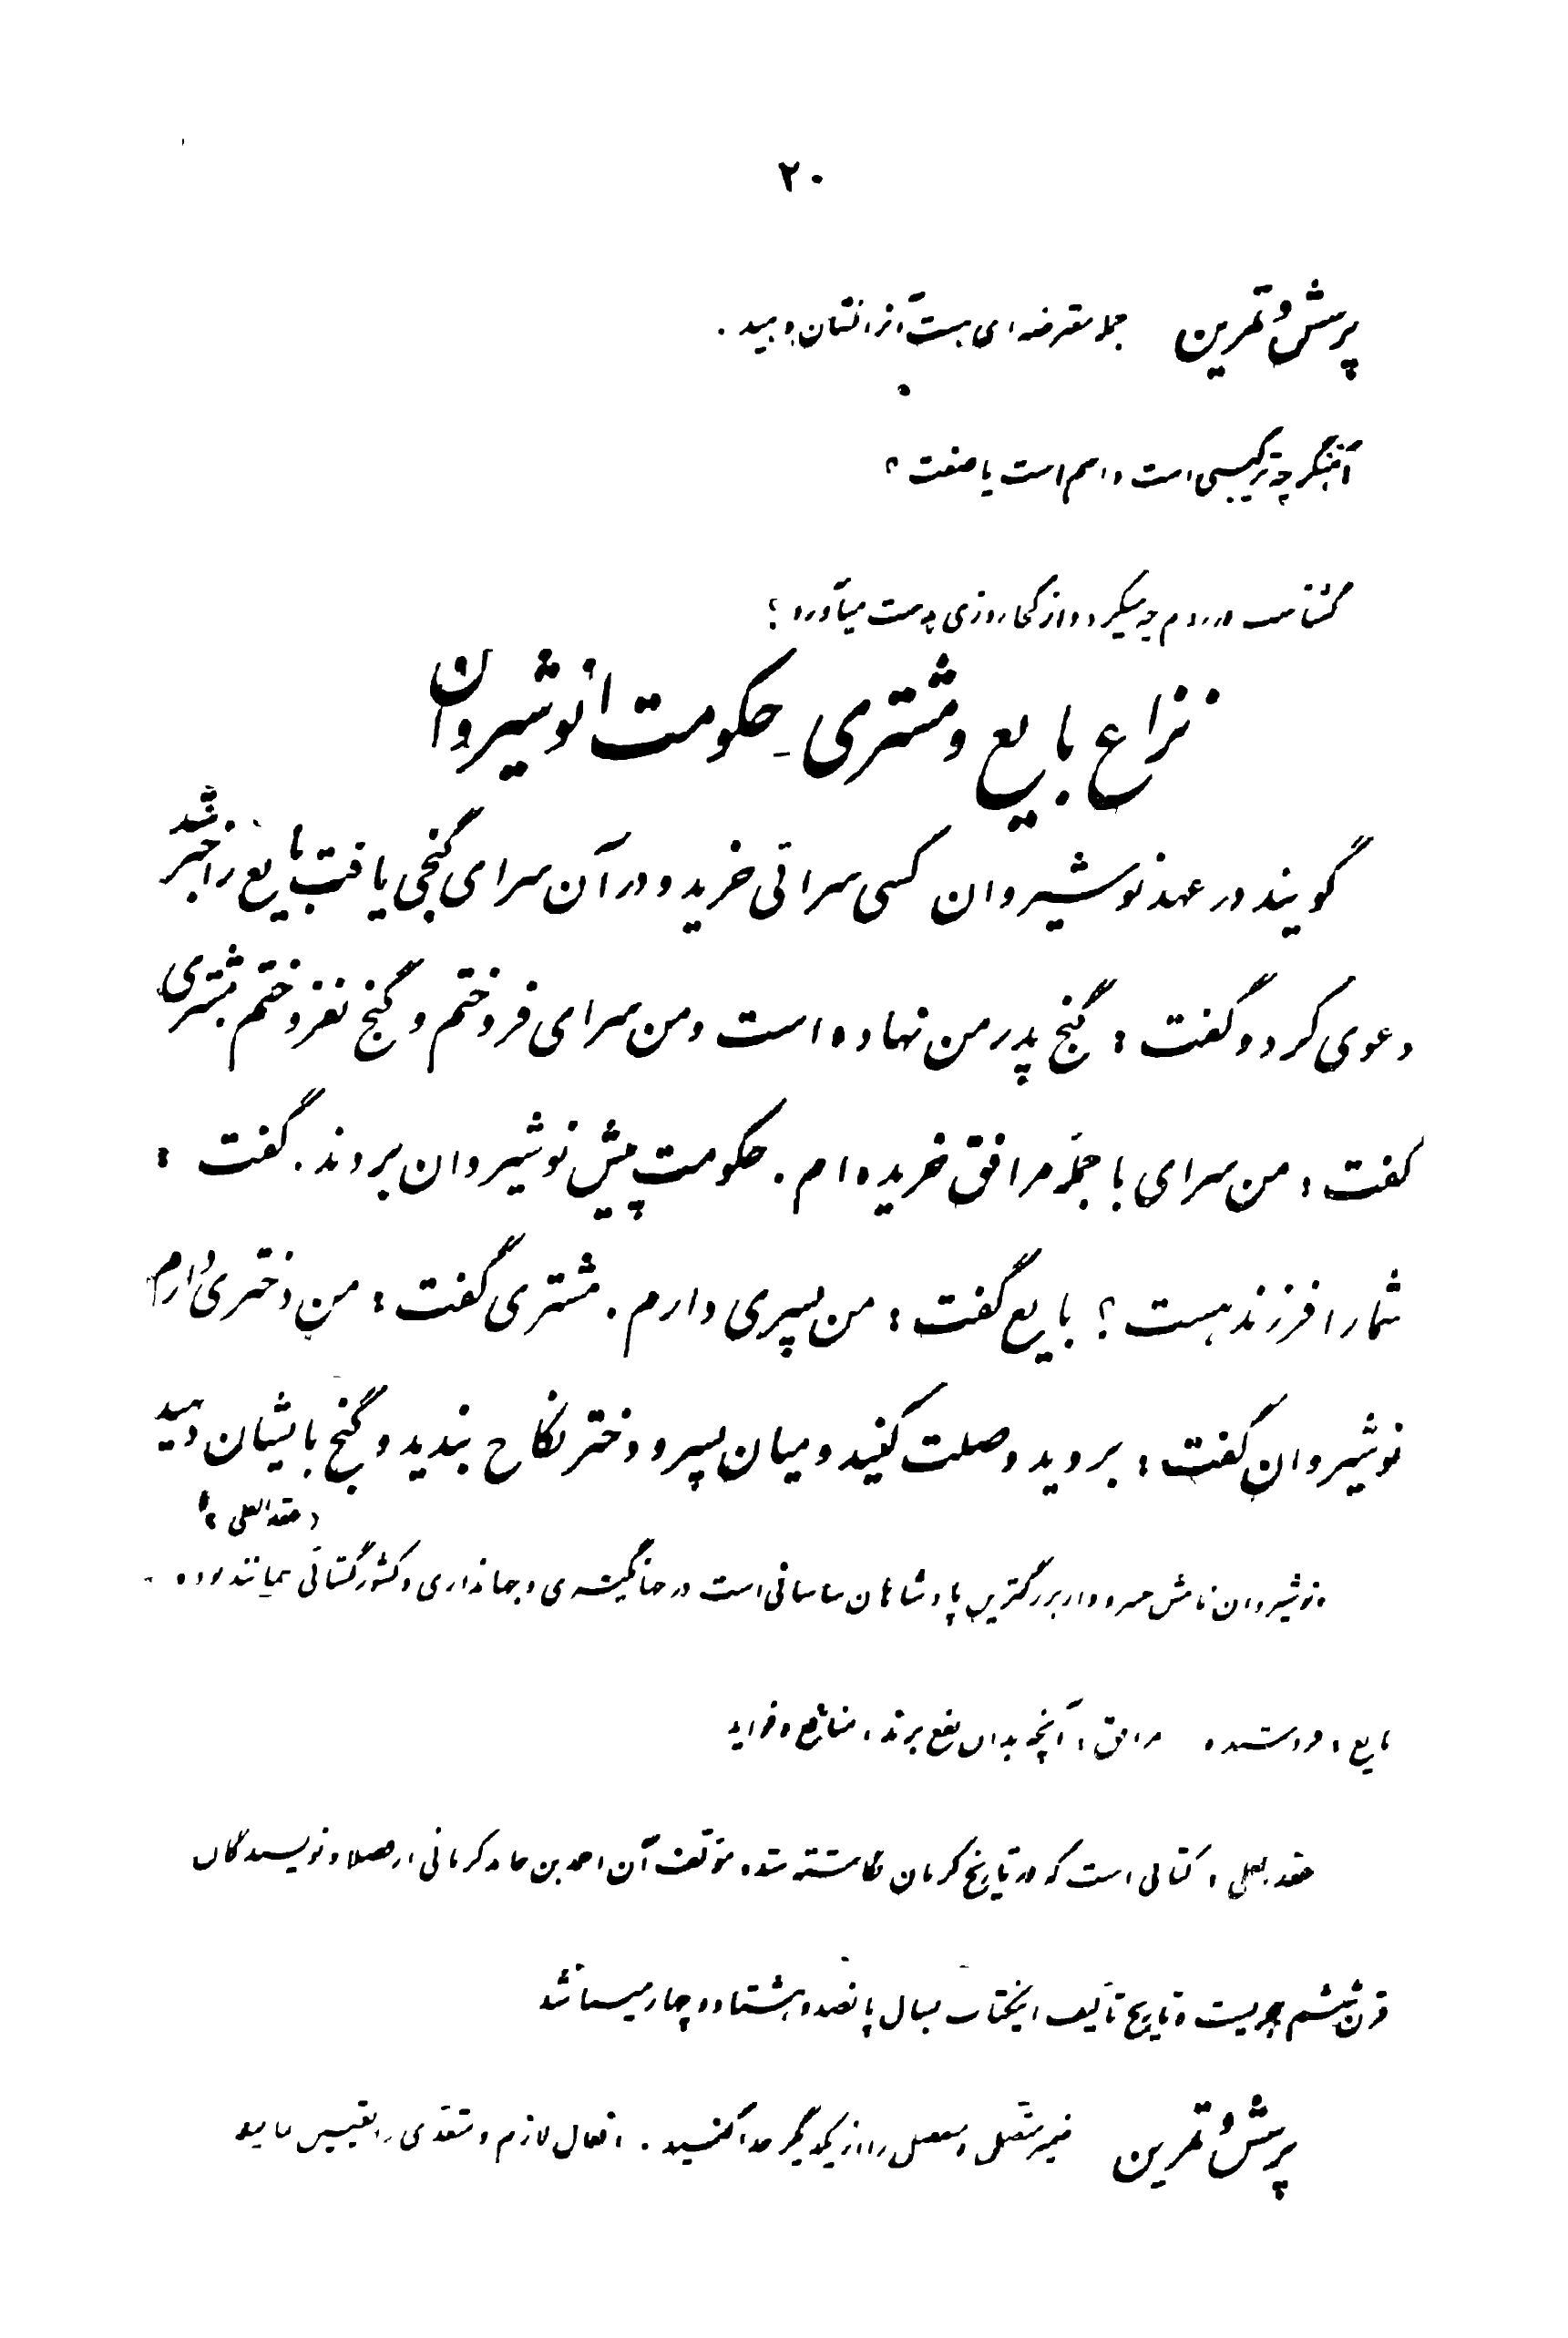 ۲۰
پرسش و تمرین جمله معترضه ای هست آنرا نشان دهید .
آهنگر چه ترکیبی است و اسم است یا صفت ؟
گشتاسب در روم چه میکرد و از کجا روزی بدست میآورد ؟
نزاع بایع و مشتری - حکومت انوشیروان
گویند در عهد نوشیروان کسی سرائی خرید و در آن سرای گنجی یافت بایع را خبر شد
دعوی کرد و گفت : گنج پدر من نهاده است و من سرای فروختم و گنج نفروختم مشتری
گفت : من سرای با جمله مرافق خریده ام . حکومت پیش نوشیروان بردند . گفت :
شما را فرزند هست ؟ بایع گفت : من پسری دارم . مشتری گفت : من دختری دارم
نوشیروان گفت : بروید وصلت کنید و میان پسر و دختر نکاح بندید و گنج بایشان دهید
« عقدالعلی »
نوشیروان نامش خسرو و از بزرگترین پادشاهان ساسانی است در جهانگیری و جهانداری و کشورگشائی بیمانند بوده .
بایع : فروشنده مرافق : آنچه بدان نفع برند ، منافع و فواید
عقدالعلی : کتابی است که در تاریخ کرمان نگاشته شده مؤلف آن احمد بن حامد کرمانی از فضلا و نویسندگان
قرن ششم هجریست و تاریخ تألیف اینکتاب بسال پانصد و هشتاد و چهار میباشد
پرسش و تمرین ضمیر متصل و منفصل را از یکدیگر جدا کنید . افعال لازم و متعدی را تعیین نمایید